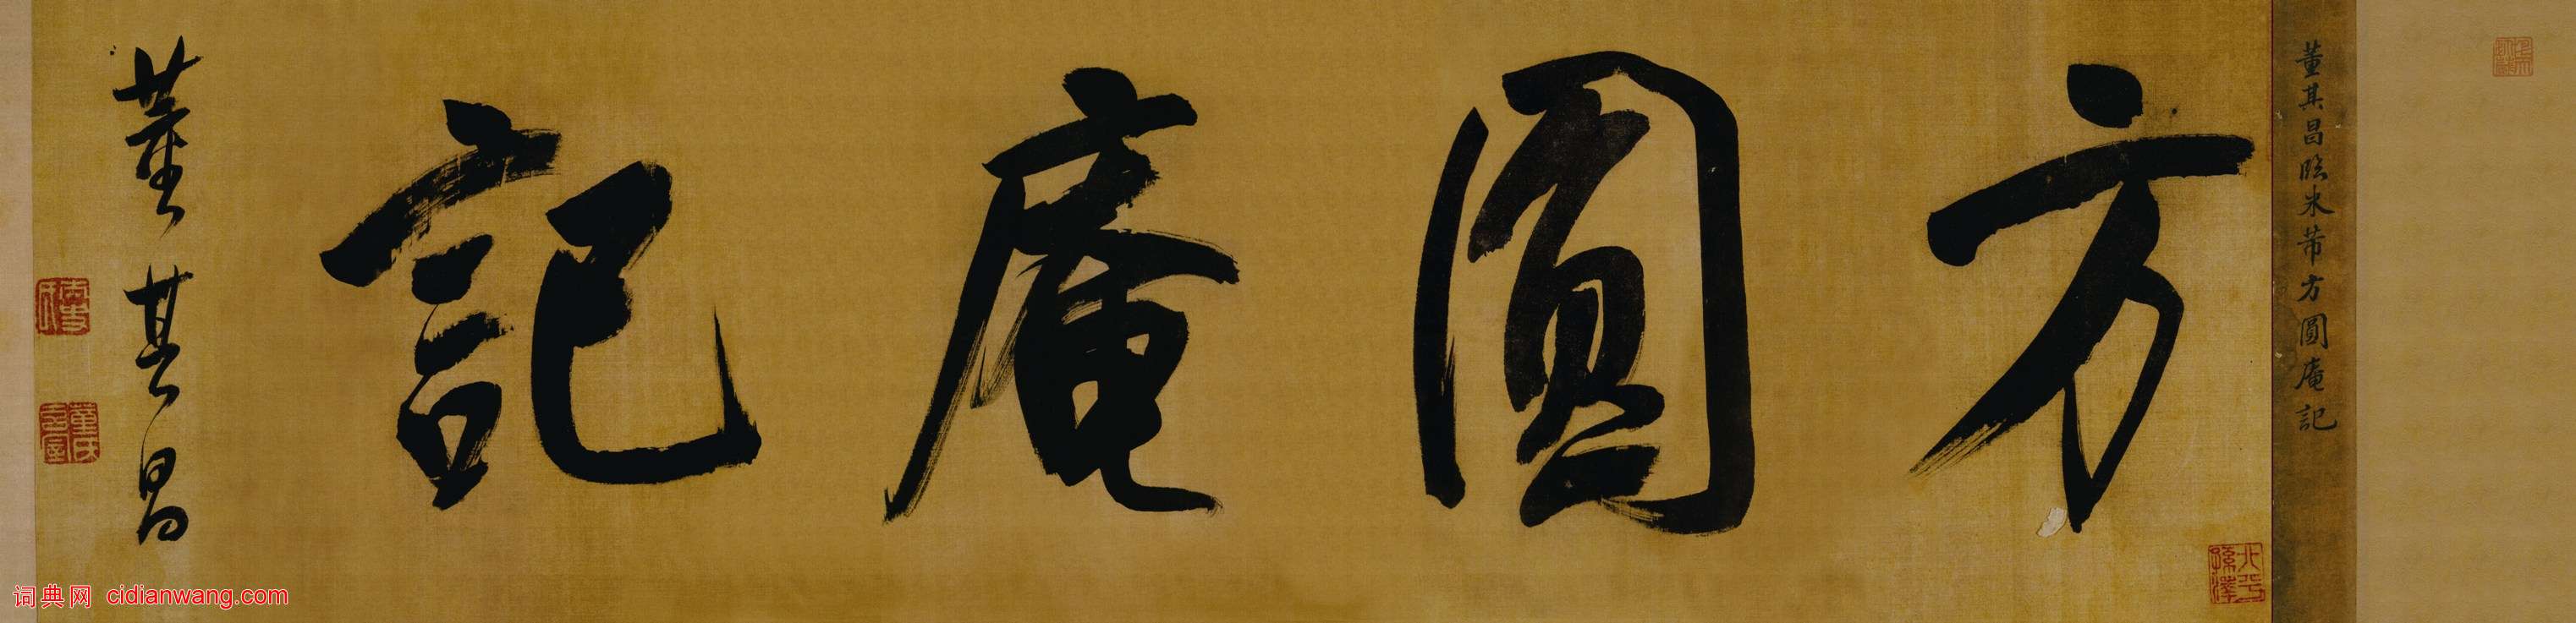 董其昌臨米芾方圓庵記
方圓庵記
董其昌
北平孫澤
詞典网 cidianwang.com